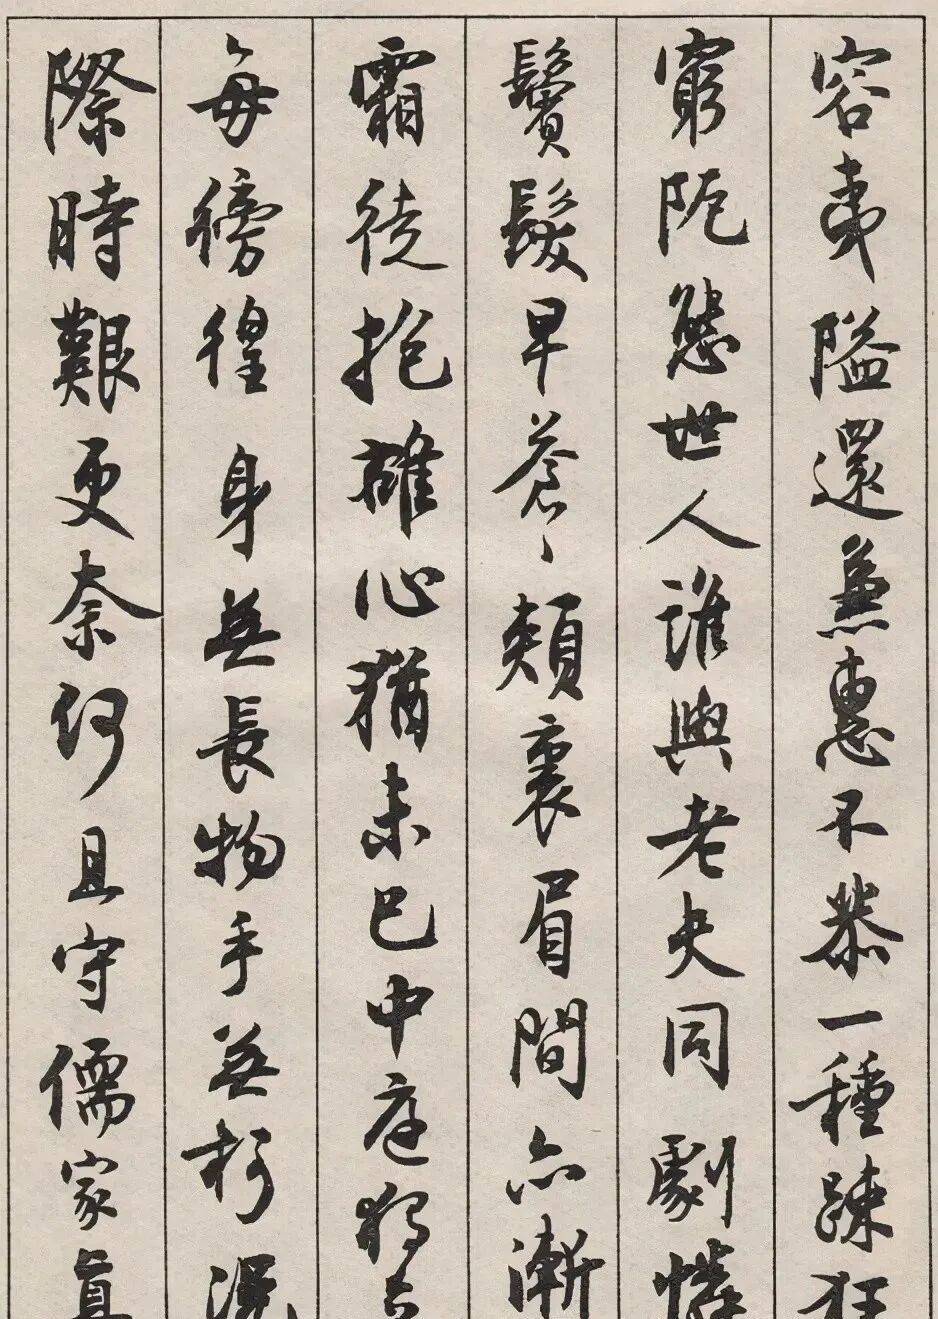 容夷隘還兼惠不恭一種踈狂
窮阨態世人誰與老夫同劇憐
鬢髮早蒼々頰裏眉間亦漸
霜徒抱雄心猶未已中庭獨
每徬徨身無長物手無柯
際時艱更奈何且守儒家真